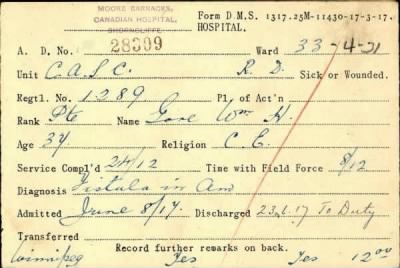 MOORE BARRACKS,
CANADIAN HOSPITAL,
SHORNCLIFFE
Form D.M.S. 1317.25M-11430-17-3-17.
HOSPITAL.
A. D. No. 28399 Ward 33-4-21
Unit C.A.S.C. R.D. Sick or Wounded.
Regtl. No. 1289 Pl. of Act'n
Rank Pte Name Gore Wm H.
Age 34 Religion C.E.
Service Compl'd 24/12 Time with Field Force 8/12
Diagnosis Fistula in Ano
Admitted June 8/17. Discharged 23.6.17 To Duty
Transferred
Record further remarks on back.
Winnipeg Yes Yes 12